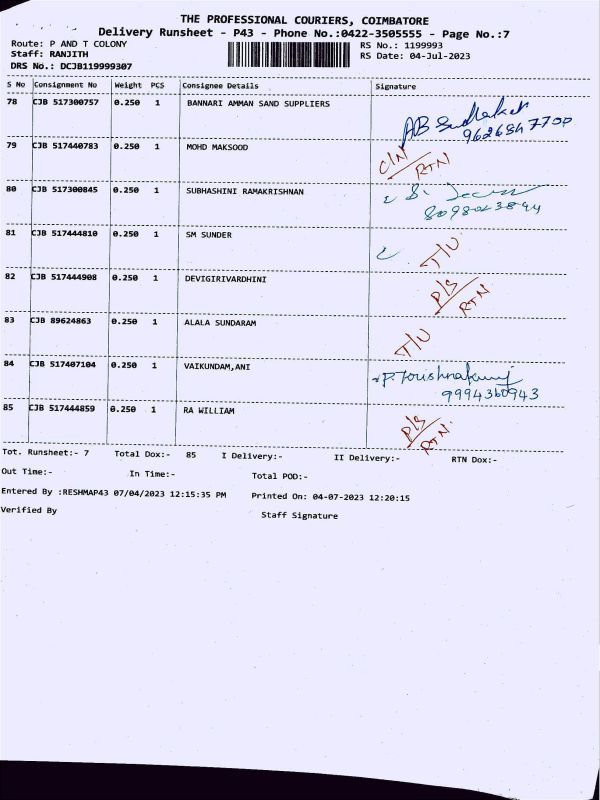 THE PROFESSIONAL COURIERS, COIMBATORE
Delivery Runsheet - P43 - Phone No.:0422-3505555 - Page No.:7
Route: P AND T COLONY RS No.: 1199993
Staff: RANJITH RS Date: 04-Jul-2023
DRS No.: DCJB119999307
S No Consignment No Weight PCS Consignee Details Signature
78 CJB 517300757 0.250 1 BANNARI AMMAN SAND SUPPLIERS
AB Sudhakar
79 CJB 517440783 0.250 1 MOHD MAKSOOD C/N RTN
80 CJB 517300845 0.250 1 SUBHASHINI RAMAKRISHNAN
81 CJB 517444810 0.250 1 SM SUNDER T/U
82 CJB 517444908 0.250 1 DEVIGIRIVARDHINI P/S RTN
83 CJB 89624863 0.250 1 ALALA SUNDARAM T/U
84 CJB 517407104 0.250 1 VAIKUNDAM,ANI
9994360943
85 CJB 517444859 0.250 1 RA WILLIAM P/S RTN
Tot. Runsheet:- 7 Total Dox:- 85 I Delivery:- II Delivery:- RTN Dox:-
Out Time:- In Time:- Total POD:-
Entered By :RESHMAP43 07/04/2023 12:15:35 PM Printed On: 04-07-2023 12:20:15
Verified By Staff Signature